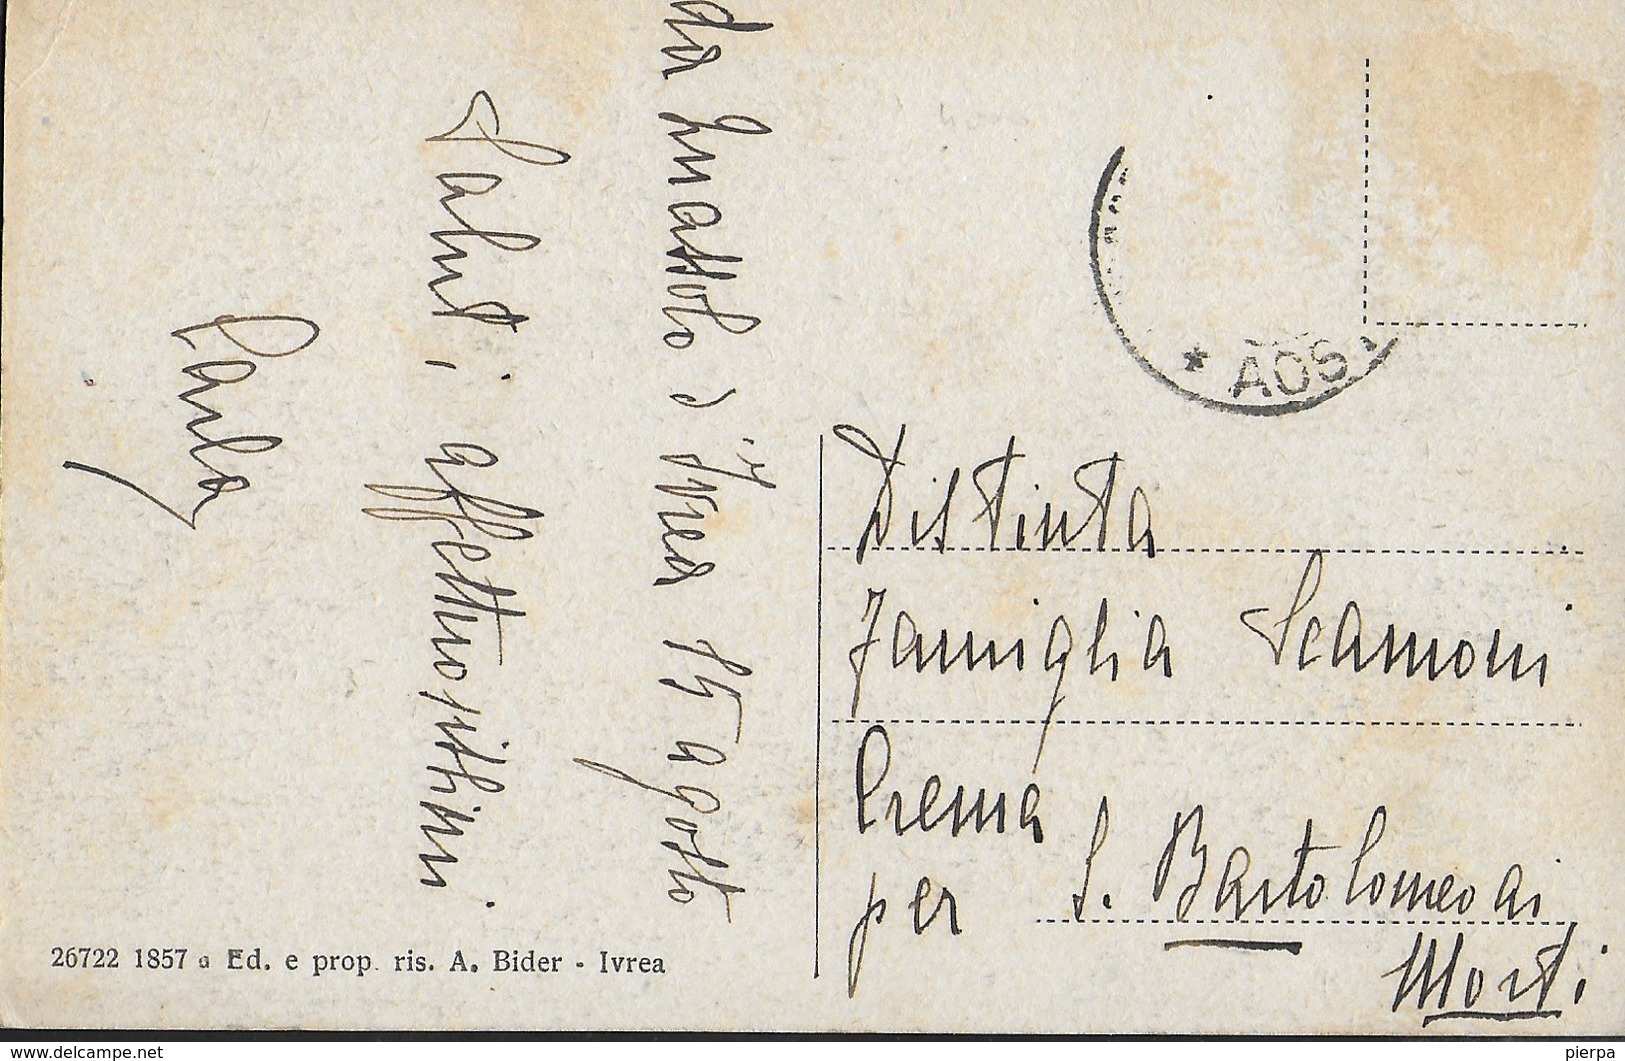 da Quassolo d'Ivrea 15 agosto
Saluti affettuosissimi
Carla
* AOS
Distinta
Famiglia Scamoni
Crema
per S. Bartolomeo ai
Morti
26722 1857 a Ed. e prop. ris. A. Bider - Ivrea
www.delcampe.net
pierpa